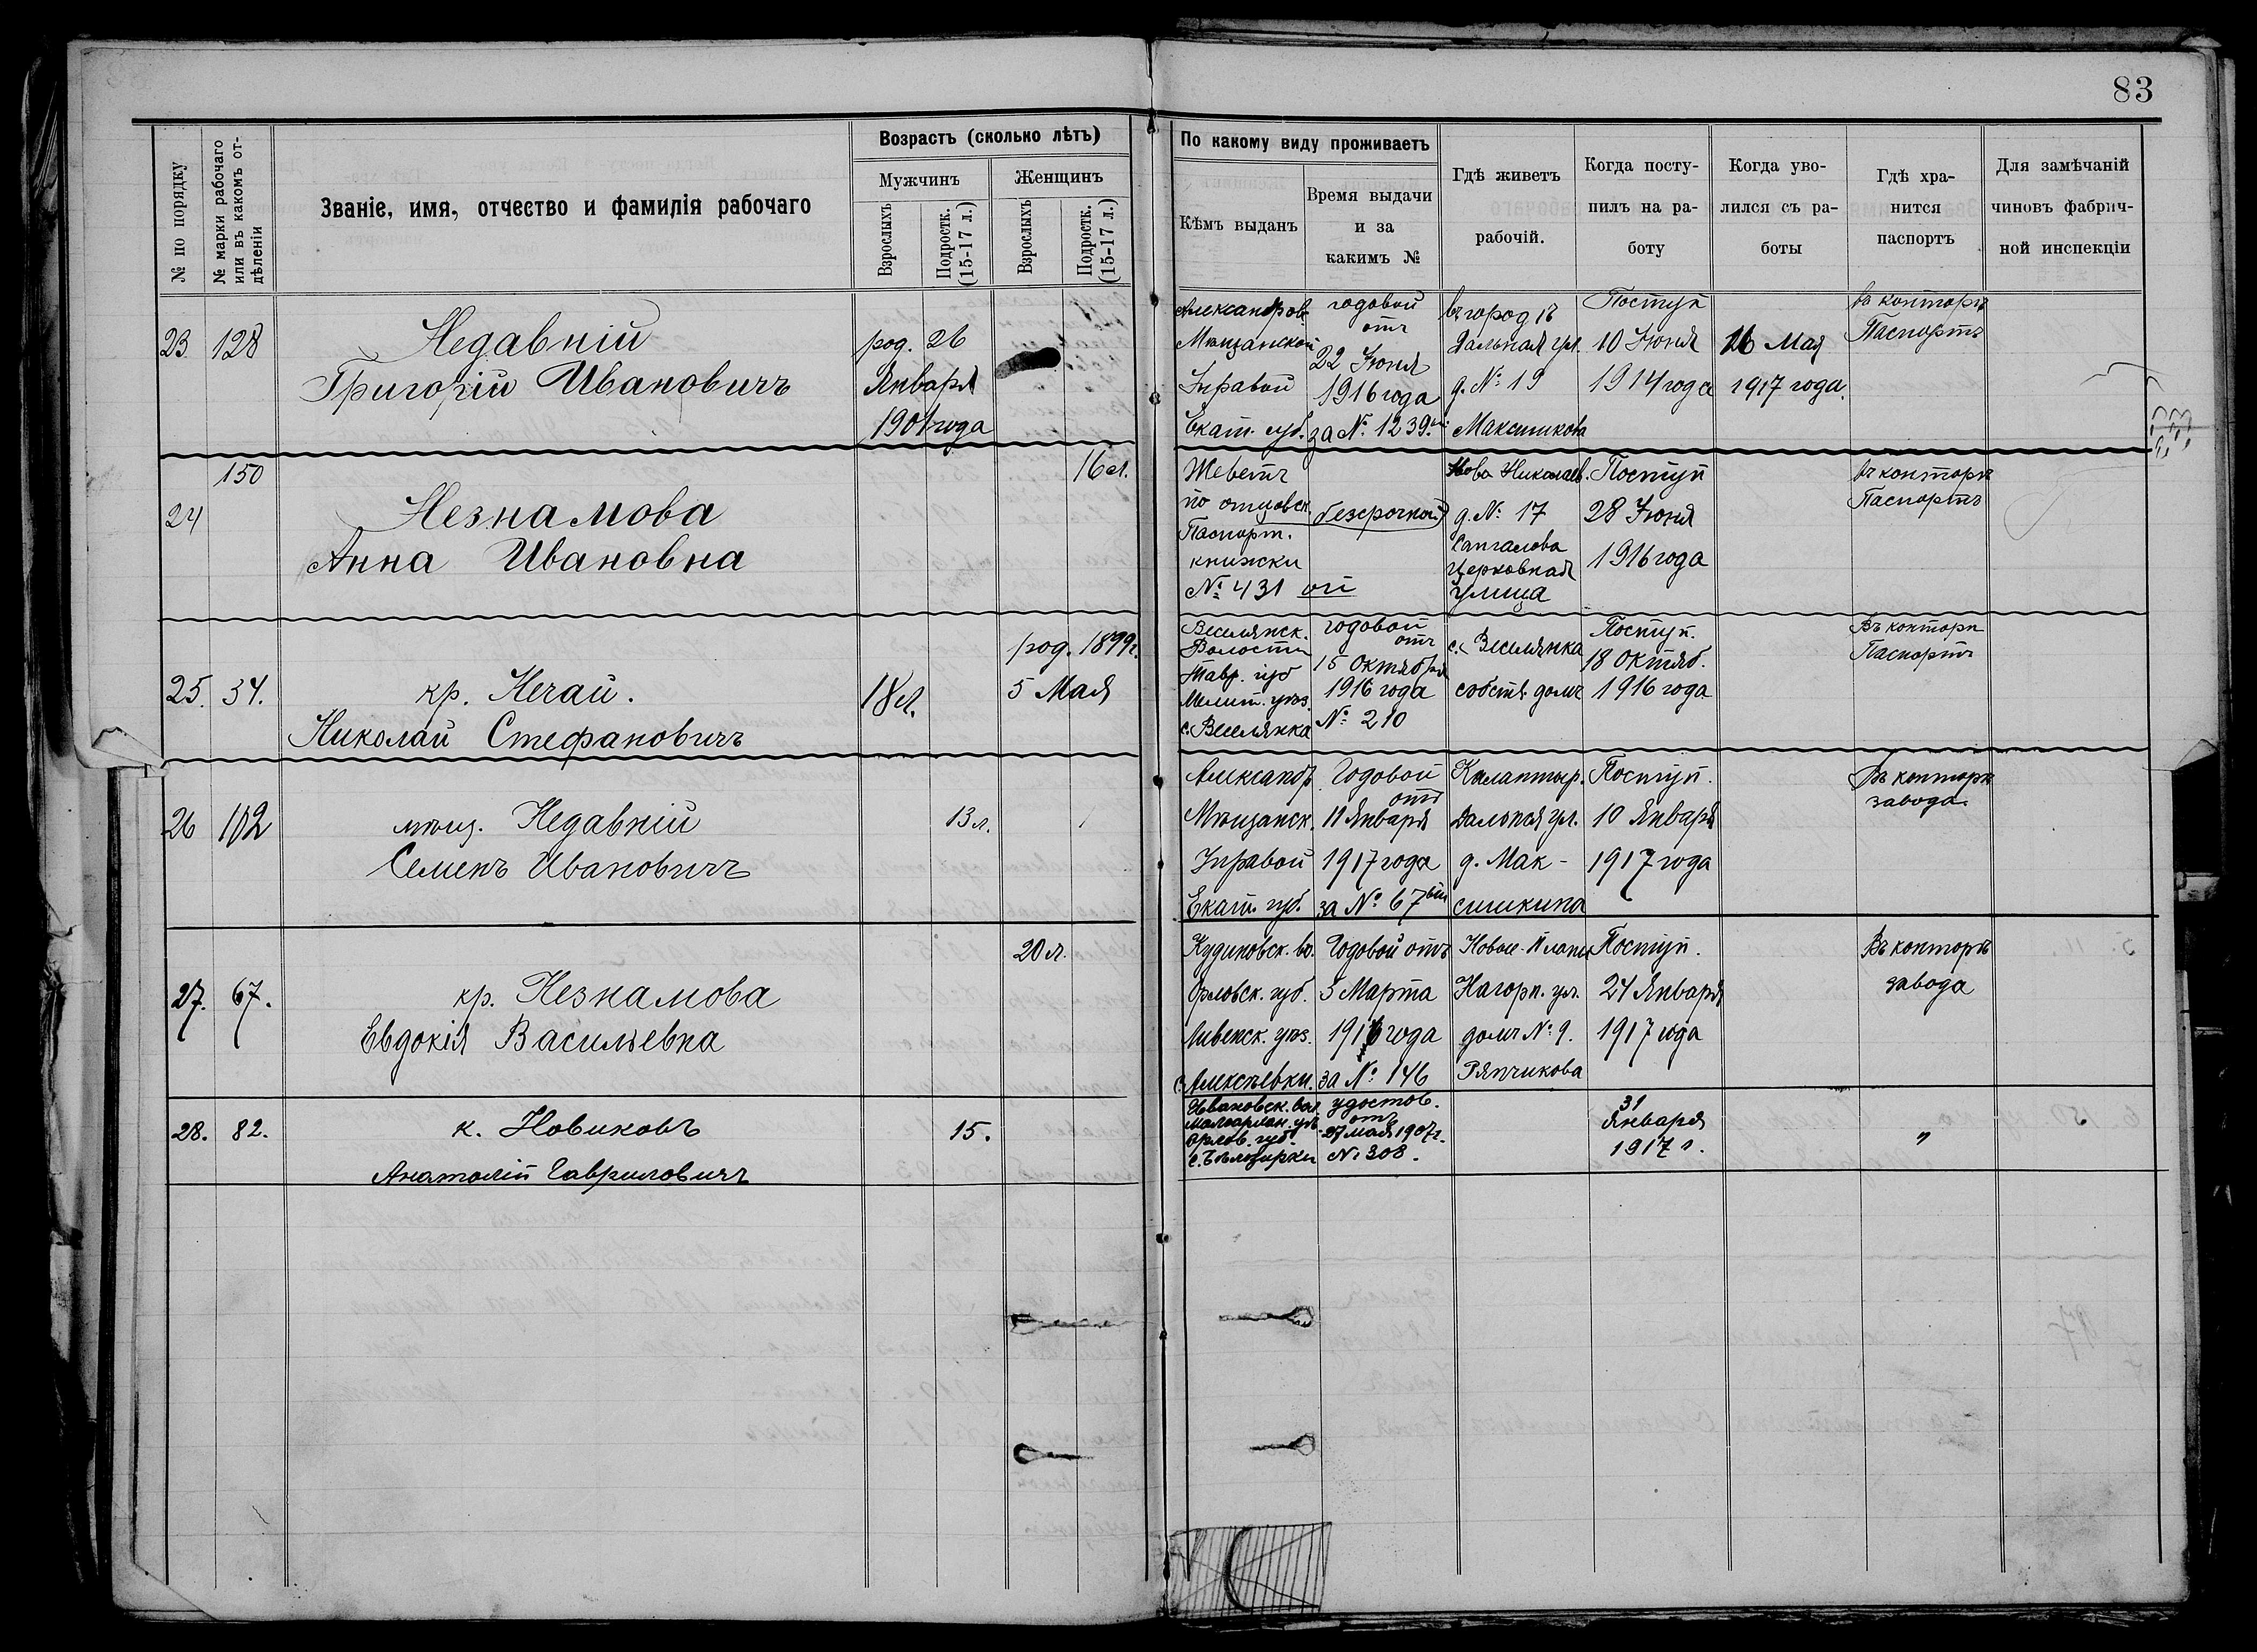 83
№ по порядку
№ марки рабочаго или въ какомъ от-дѣленіи
Званіе, имя, отчество и фамилія рабочаго
Возрастъ (сколько лѣтъ)
Мужчинъ
Женщинъ
Взрослыхъ
Подростк. (15-17 л.)
Взрослыхъ
Подростк. (15-17 л.)
По какому виду проживаетъ
Кѣмъ выданъ
Время выдачи
и за
какимъ №
Гдѣ живетъ
рабочій.
Когда посту-
пилъ на ра-
боту
Когда уво-
лился съ ра-
боты
Гдѣ хра-
нится
паспортъ
Для замѣчаній
чиновъ фабрич-
ной инспекціи
23. 128
Недавній
Григорій Ивановичъ
род. 26
Января
1901 года
Александров.
Мѣщанской
Управой
Екат. губ.
годовой
отъ
22 Іюня
1916 года
за № 1239.
въ город
Дальная ул.
д. № 19
Поступ
10 Іюня
1914 года
16 Мая
1917 года.
въ конторѣ
Паспортъ
24
150
Незнамова
Анна Ивановна
16 л.
Живетъ
по отцовск.
Паспорт.
книжки
№ 431 ой
безсрочной
Ново Николаев.
д. № 17
Церковная
улица
Поступ
28 Іюня
1916 года
въ конторѣ
Паспортъ
25. 34.
кр. Нечай.
Николай Стефановичъ
18 л.
род. 1899 г.
5 Мая
Веселянск.
Волости
Тавр. губ
Мелит. уѣз.
с. Веселянка
годовой
отъ
15 Октября
1916 года
№ 210
с. Веселянка
собств домъ
Поступ.
18 Октяб.
1916 года
Въ конторѣ
Паспортъ
26 102
мѣщ. Недавній
Семенъ Ивановичъ
13 л.
Александр
Мѣщанск.
Управой
Екат. губ.
Годовой
отъ
11 Января
1917 года
за № 67
Дальная ул.
д. Мак-
симкина
Поступ.
10 Января
1917 года
Въ конторѣ
завода.
27. 67.
кр. Незнамова
Евдокія Васильевна
20 л.
Орловск. губ.
Ливенск. уѣз.
с. Алексѣевки.
Годовой отъ
3 Марта
1916 года
за № 146
Нагорн. ул.
домъ № 9.
Рянчикова
Поступ.
24 Января
1917 года
Въ конторѣ
завода
28. 82.
к. Новиковъ
Анатолій Гавриловичъ
15.
Ивановск. вол.
Орлов. губ.
удостов.
отъ
27 мая 1907 г.
№ 308.
31
Января
1917 г.
"